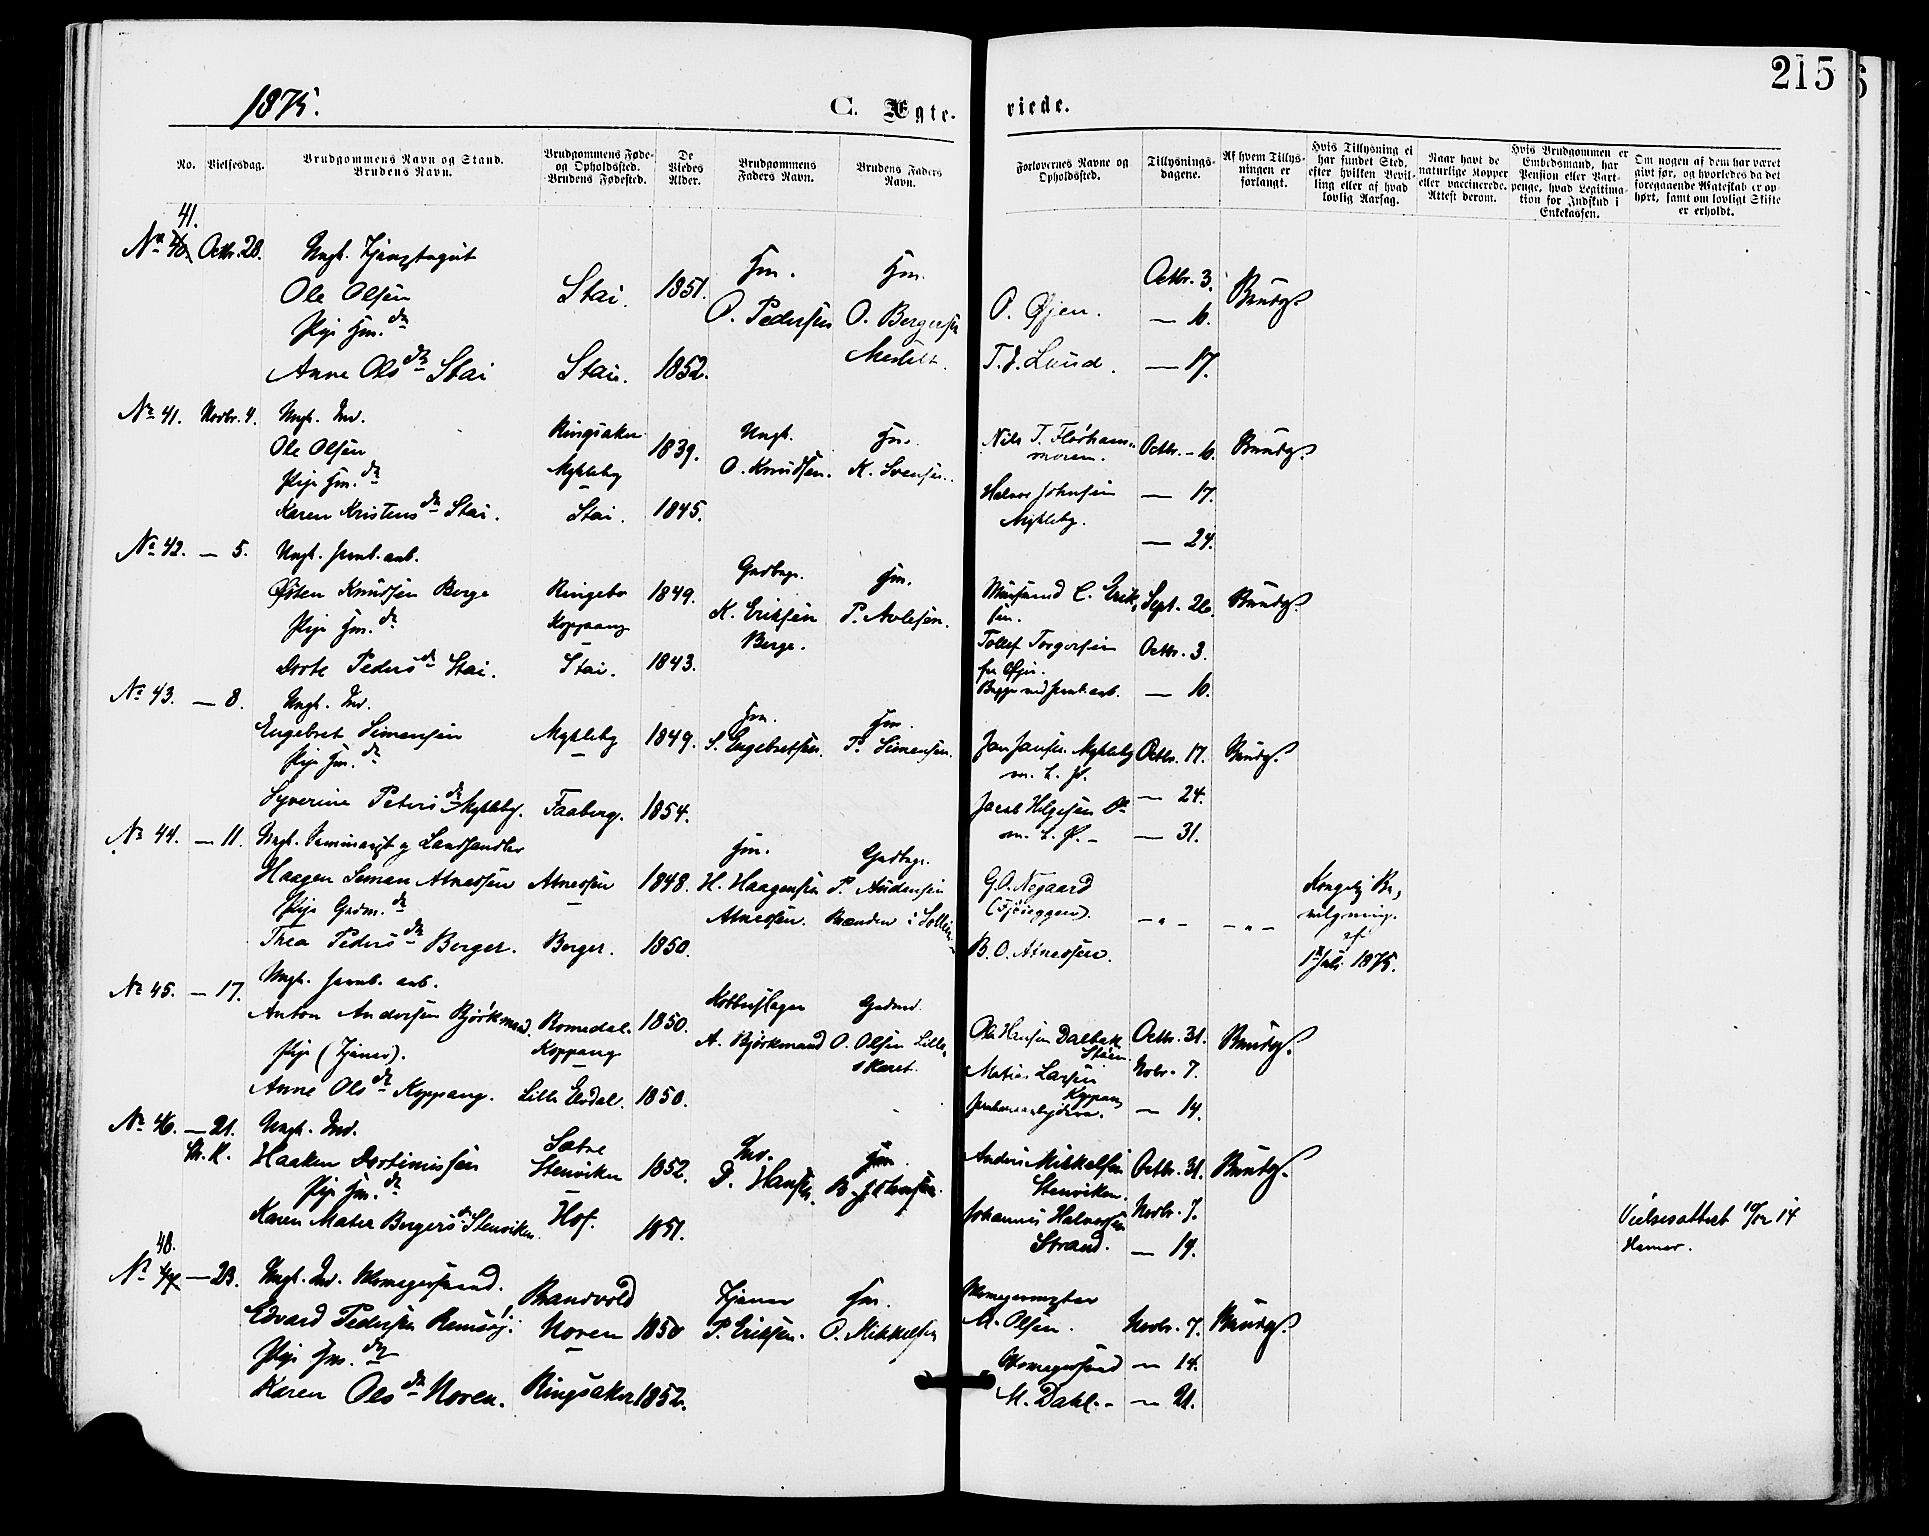 215
1875.
C. Egte-
viede.
No.
Vielsesdag.
Brudgommens Navn og Stand.
Brudens Navn.
Brudgommens Føde-
og Opholdssted.
Brudens Fødested.
De
Viedes
Alder.
Brudgommens
Faders Navn.
Brudens Faders
Navn.
Forlovernes Navne og
Opholdssted.
Tillysnings-
dagene.
Af hvem Tillys-
ningen er
forlangt.
Hvis Tillysning ei
har fundet Sted,
efter hvilken Bevil-
ling eller af hvad
lovlig Aarsag.
Naar havt de
naturlige Kopper
eller vaccinerede.
Attest derom.
Hvis Brudgommen er
Embedsmand, har
Pension eller Vart-
penge, hvad Legitima-
tion for Indskud i
Enkekassen.
Om nogen af dem har været
givt før, og hvorledes da det
foregaaende Ægteskab er op-
hørt, samt om lovligt Skifte
er erholdt.
41.
No 40. Octbr. 28.
Ungk.
Ole Olsen
Pige Gm. dr
Anne Olsdr Stai
Stai.
Stai.
1851.
1852.
Gm.
O. Pedersen
Gm.
O. Bergersen
O. Øjen.
T. J. Lund.
Octbr. 3.
— 10.
— 17.
Brudg.
No 41. Novbr. 4.
Ungk. Ind.
Ole Olsen
Pige Gm. dr
Karen Kristensdr Stai.
Ringsaker
Mykleby
Stai.
1839.
1845.
Ungk.
O. Knudsen.
Gm.
K. Svensen.
Nils T.
Halvor Johnsen
Mykleby.
Octbr. – 10.
— 17.
— 24.
Brudg.
No 42. — 5.
Ungk. Jernb. arb.
Østen Knudsen Berge
Pige Gm. dr
Dorte Pedersdr Stai.
Ringebo
Koppang
Stai.
1849.
1843.
Gaardbr.
K. Eriksen
Berge.
Gm.
P. Avlesen.
C. Erik-
sen.
Tollef Torgersen
fra Øjen.
Begge ved Jernb. arb.
Sept. 26.
Octbr. 3.
— 10.
Brudg.
No 43. — 8.
Ungk. Ind.
Engebret Simensen
Pige Gm. dr
Syverine Petersdr Mykleby.
Mykleby
Faaberg.
1849.
1854.
Gm.
S. Engebretsen.
Gm.
P. Simensen.
Jan Jansen Mykleby
Jacob Helgesen
Octbr. 17.
— 24.
— 31.
Brudg.
No 44. — 11.
Ungk. Seminarist og Landhandler
Haagen Simen Atnessen
Pige Gaardm. dr
Thea Pedersdr Berger.
Atnessen
Berger.
1848.
1850.
Gm.
H. Haagensen
Atnessen.
Gaardbr.
P. Audensen
Brænden i Sollien
G. O. Negaard
B. O. Atnessen.
– " –
– " –
Kongelig Be-
vilgning
af
1ste Juli 1875.
No 45. — 17.
Ungk. Jernb. arb.
Anton Andersen Bjørkmand.
Pige (Tjener).
Anne Olsdr Koppang.
Romedal
Koppang
Lille Elvdal.
1850.
1850.
Kobberslager
A. Bjørkmand
Gaardmd.
O. Olsen Lille-
skaret.
Ole Hansen Dalbak
Støen.
Matias Larsen
Koppang
Jernbanearbejdere.
Octbr. 31.
Novbr. 7.
— 14.
Brudg.
No 46. — 21.
St. K.
Ungk. Ind.
Haaken Dortinussen
Pige Gm. dr
Karen Matea Bergersdr Stenviken
Sætre
Stenviken
Hof.
1852.
1851.
Ind.
D. Hansen.
Gm.
B. Johnsen.
Anders Mikkelsen
Stenviken.
Johannes Halvorsen
Strand.
Octbr. 31.
Novbr. 7.
— 14.
Brudg.
Vielsesattest 10/12 14
Hamar.
48.
No 47. — 23.
Ungk. Ind. Bromagersvend.
Edvard Pedersen
Pige Gm. dr
Karen Olsdr Noren.
Brandvold
Noren
Ringsaker
1850
1852.
Tjener
P. Eriksen.
Gm.
O. Mikkelsen
M. Olsen.
M. Dahl. –
Novbr. 7.
— 14.
— 21.
Brudg.